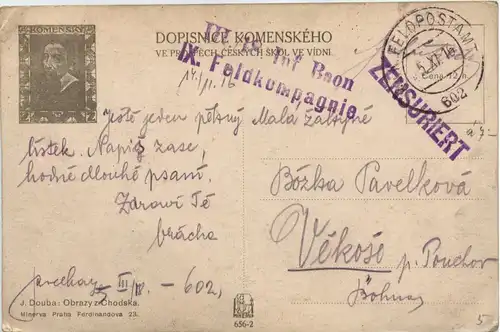 KOMENSKÝ
DOPISNICE KOMENSKÉHO
VE PROSPĚCH ČESKÝCH ŠKOL VE VÍDNI.
Inf Baon
IX. Feldkompagnie
FELDPOSTAMT
602
ZENSURIERT
14/11. 16
Ještě jeden pěkný
lístek. Napiš zase
hodně dlouhé psaní.
Zdraví Tě
brácha
602,
Malá
Božka Pavelková
Věkoše
p. Pouchov
Böhmen
J. Douba: Obrazy z Chodska.
Minerva Praha Ferdinandova 23.
656-2
5